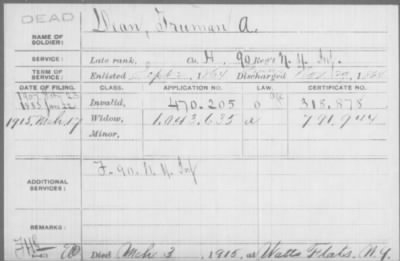 DEAD
NAME OF SOLDIER: Dean, Truman A.
SERVICE: Late rank, Co. H, 90 Reg't N.Y. Inf.
TERM OF SERVICE: Enlisted 1864 Discharged
DATE OF FILING. CLASS. APPLICATION NO. LAW. CERTIFICATE NO.
Invalid, 470.205 318.878
1915, Mch 17 Widow, 1.043.635 791.944
Minor,
ADDITIONAL SERVICES: F. 90. N.Y. Inf
REMARKS:
Died Mch 3, 1915, at Watts Flats, N.Y.